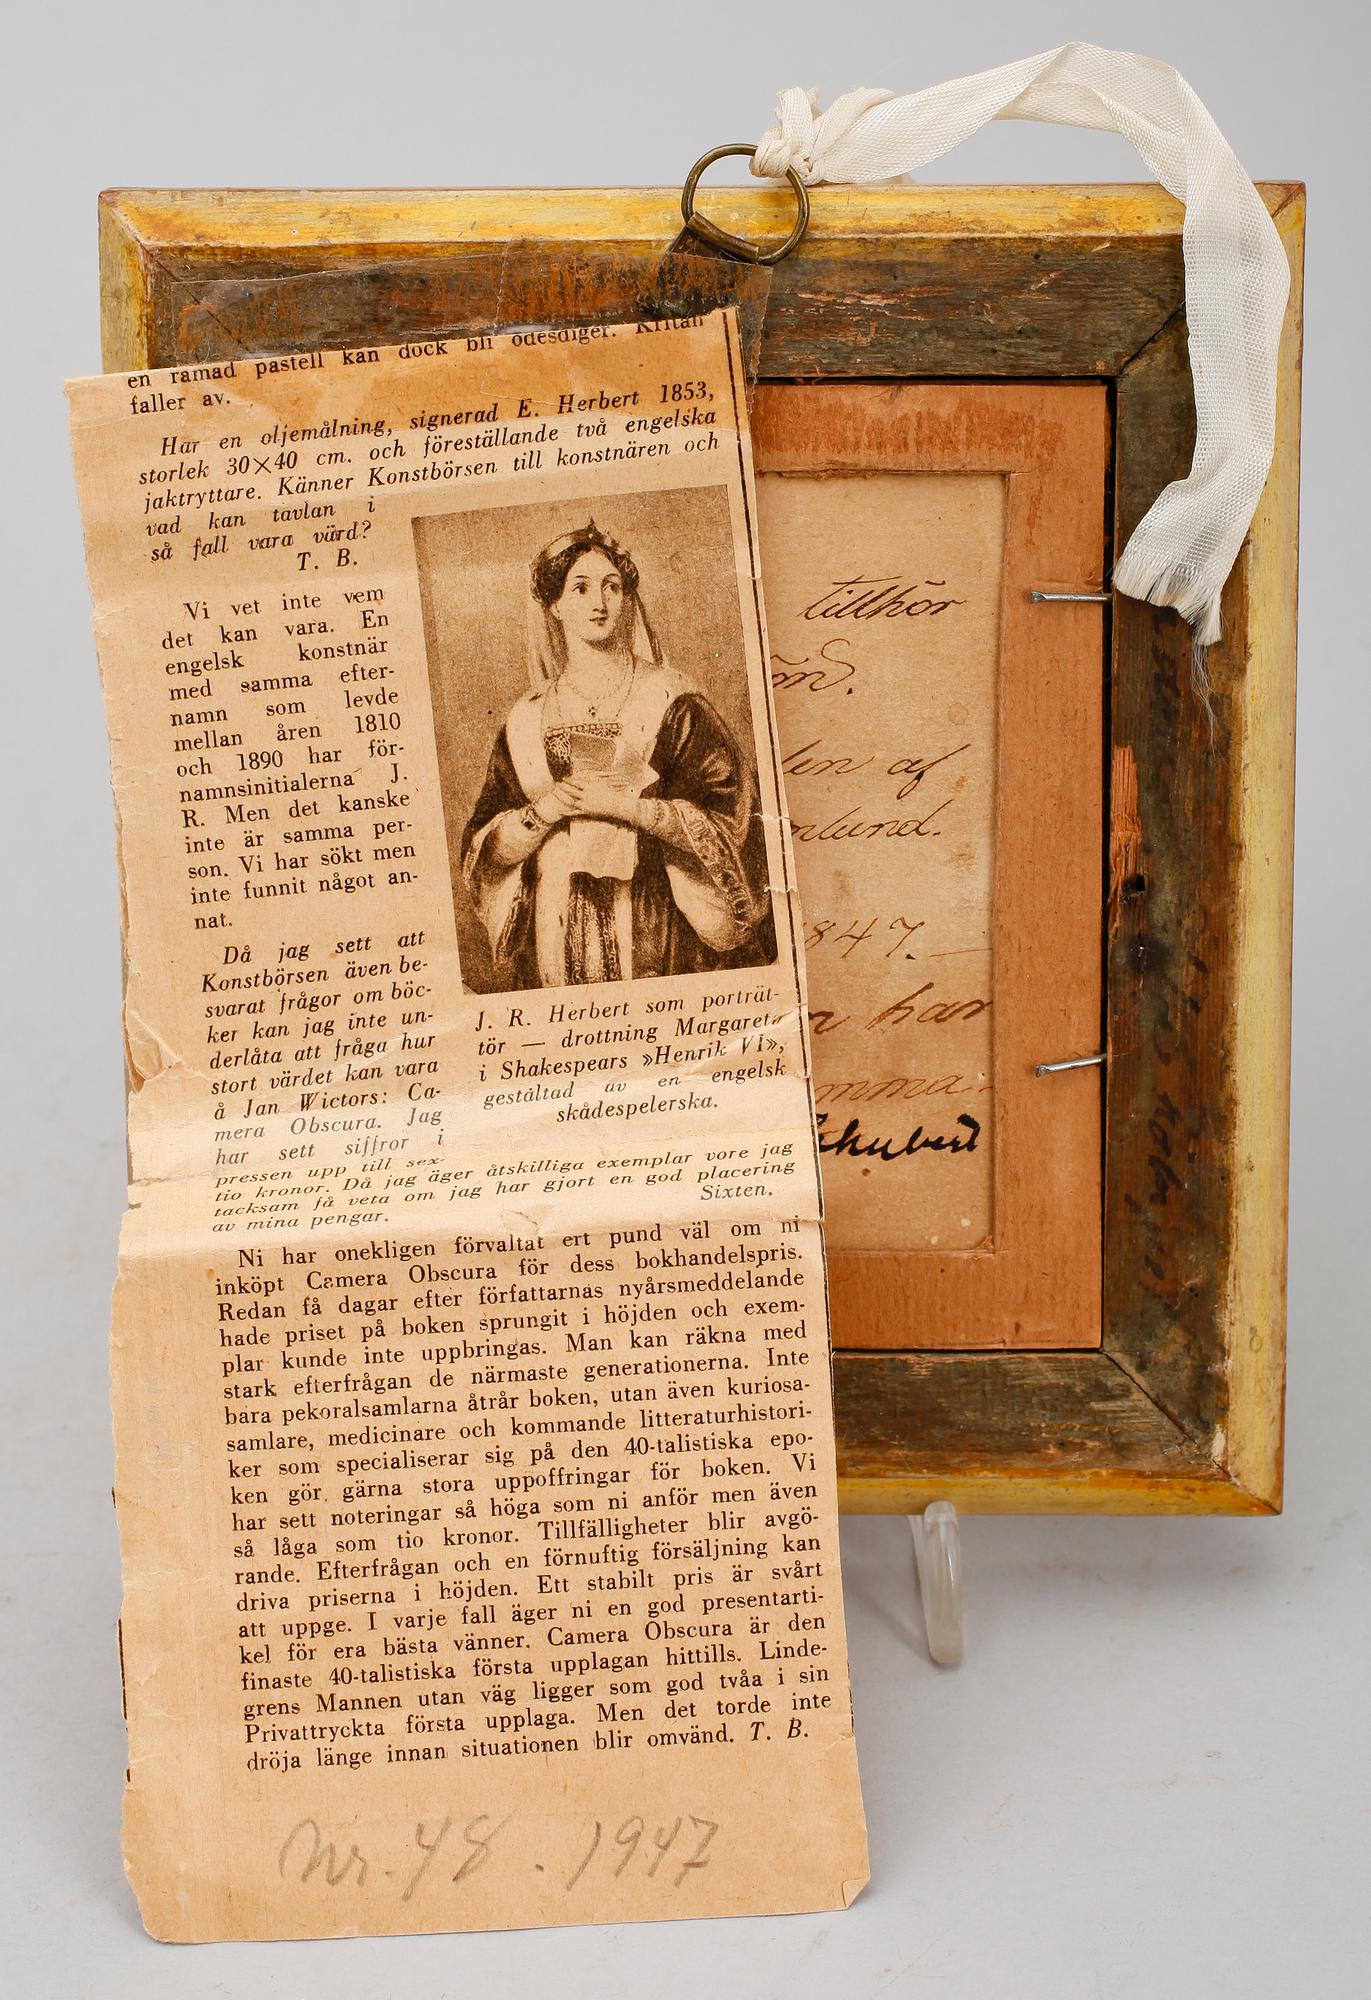 en ramad pastell kan dock bli ödesdiger. Kritan
faller av.
Har en oljemålning, signerad E. Herbert 1853,
storlek 30×40 cm. och föreställande två engelska
jaktryttare. Känner Konstbörsen till konstnären och
vad kan tavlan i
så fall vara värd?
T. B.
Vi vet inte vem
det kan vara. En
engelsk konstnär
med samma efter-
namn som levde
mellan åren 1810
och 1890 har för-
namnsinitialerna J.
R. Men det kanske
inte är samma per-
son. Vi har sökt men
inte funnit något an-
nat.
Då jag sett att
Konstbörsen även be-
svarat frågor om böc-
ker kan jag inte un-
derlåta att fråga hur
stort värdet kan vara
å Jan Wictors: Ca-
mera Obscura. Jag
har sett siffror i
pressen upp till sex-
tio kronor. Då jag äger åtskilliga exemplar vore jag
tacksam få veta om jag har gjort en god placering
av mina pengar.
Sixten.
J. R. Herbert som porträt-
tör — drottning Margareta
i Shakespears »Henrik VI»,
gestaltad av en engelsk
skådespelerska.
Ni har onekligen förvaltat ert pund väl om ni
inköpt Camera Obscura för dess bokhandelspris.
Redan få dagar efter författarnas nyårsmeddelande
hade priset på boken sprungit i höjden och exem-
plar kunde inte uppbringas. Man kan räkna med
stark efterfrågan de närmaste generationerna. Inte
bara pekoralsamlarna åtrår boken, utan även kuriosa-
samlare, medicinare och kommande litteraturhistori-
ker som specialiserar sig på den 40-talistiska epo-
ken gör gärna stora uppoffringar för boken. Vi
har sett noteringar så höga som ni anför men även
så låga som tio kronor. Tillfälligheter blir avgö-
rande. Efterfrågan och en förnuftig försäljning kan
driva priserna i höjden. Ett stabilt pris är svårt
att uppge. I varje fall äger ni en god presentarti-
kel för era bästa vänner. Camera Obscura är den
finaste 40-talistiska första upplagan hittills. Linde-
grens Mannen utan väg ligger som god tvåa i sin
Privattryckta första upplaga. Men det torde inte
dröja länge innan situationen blir omvänd. T. B.
Nr. 48. 1947
tillhör
len af
nlund.
847.
har
mma.
chubert